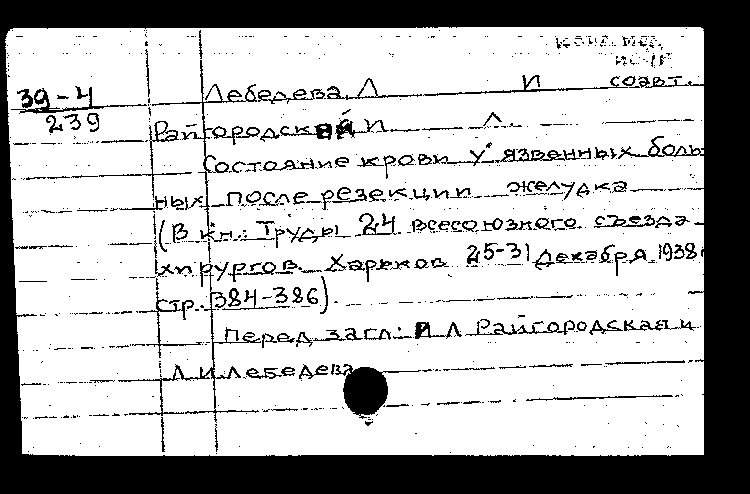 39-4
239
Лебедева Л И соавт.
Райгородский И Л.
Состояние крови у язвенных боль
ных после резекции желудка
(В кн.: Труды 24 всесоюзного съезда
хирургов Харьков 25-31 декабря 1938
стр. 384-386).
Перед загл: И Л Райгородская и
Л И Лебедева